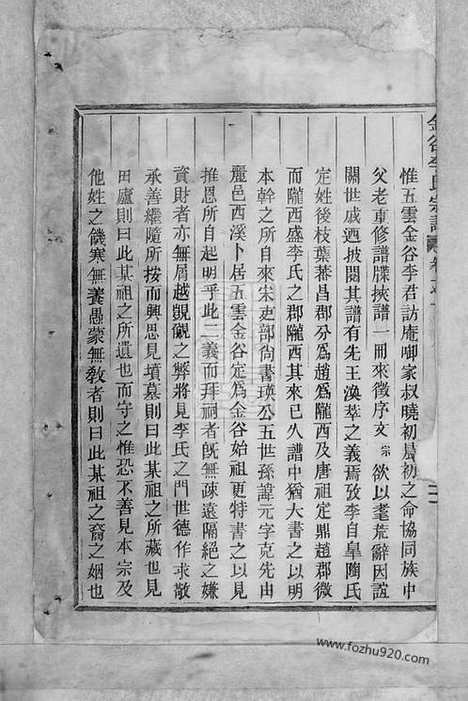 惟五雲金谷李君訪庵啣家叔曉初晨初之命協同族中
父老重修譜牒挾譜一冊來徵序文宗欲以耄荒辭因誼
關世戚迺披閱其譜有先王渙萃之義焉攷李自皐陶氏
定姓後枝葉蕃昌郡分爲趙爲隴西及唐祖定鼎趙郡微
而隴西盛李氏之郡隴西其來已久譜中猶大書之以明
本幹之所自來宋吏部尙書瑛公五世孫諱元字克先由
麗邑西溪卜居五雲金谷定爲金谷始祖更特書之以見
推恩所自起明乎此二義而拜祠者旣無疎遠隔絕之嫌
資財者亦無屑越覬覦之弊將見李氏之門世德作求敬
承善繼隨所按而興思見墳墓則曰此某祖之所藏也見
田廬則曰此某祖之所遺也而守之惟恐不善見本宗及
他姓之饑寒無養愚蒙無敎者則曰此某祖之裔之姻也
金谷李氏宗譜
www.fozhu920.com